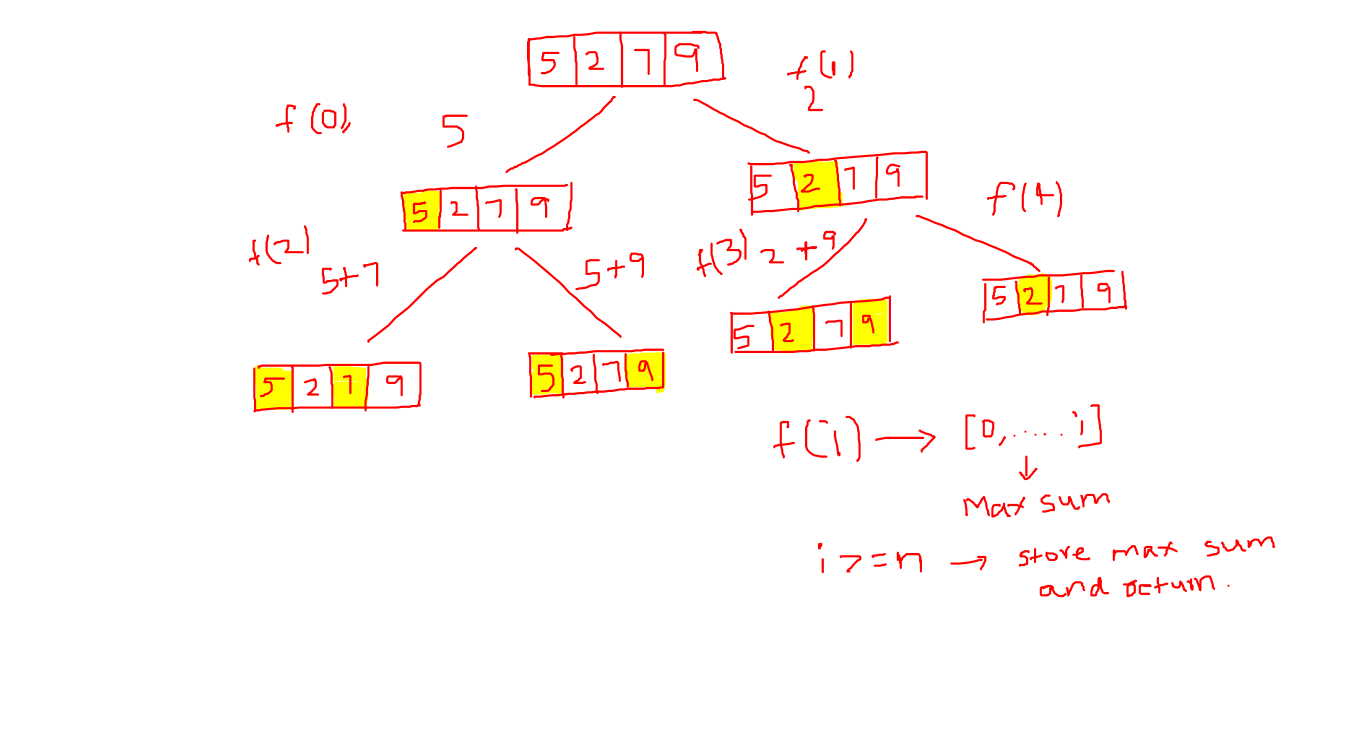 5 2 7 9
f(0),
5
f(1)
2
5 2 7 9
5 2 7 9
f(2)
5+7
5+9
f(3) 2+9
f(4)
5 2 7 9
5 2 7 9
5 2 7 9
5 2 7 9
f(i) → [0,.....i]
↓
Max sum
i >= n → store max sum
and return.